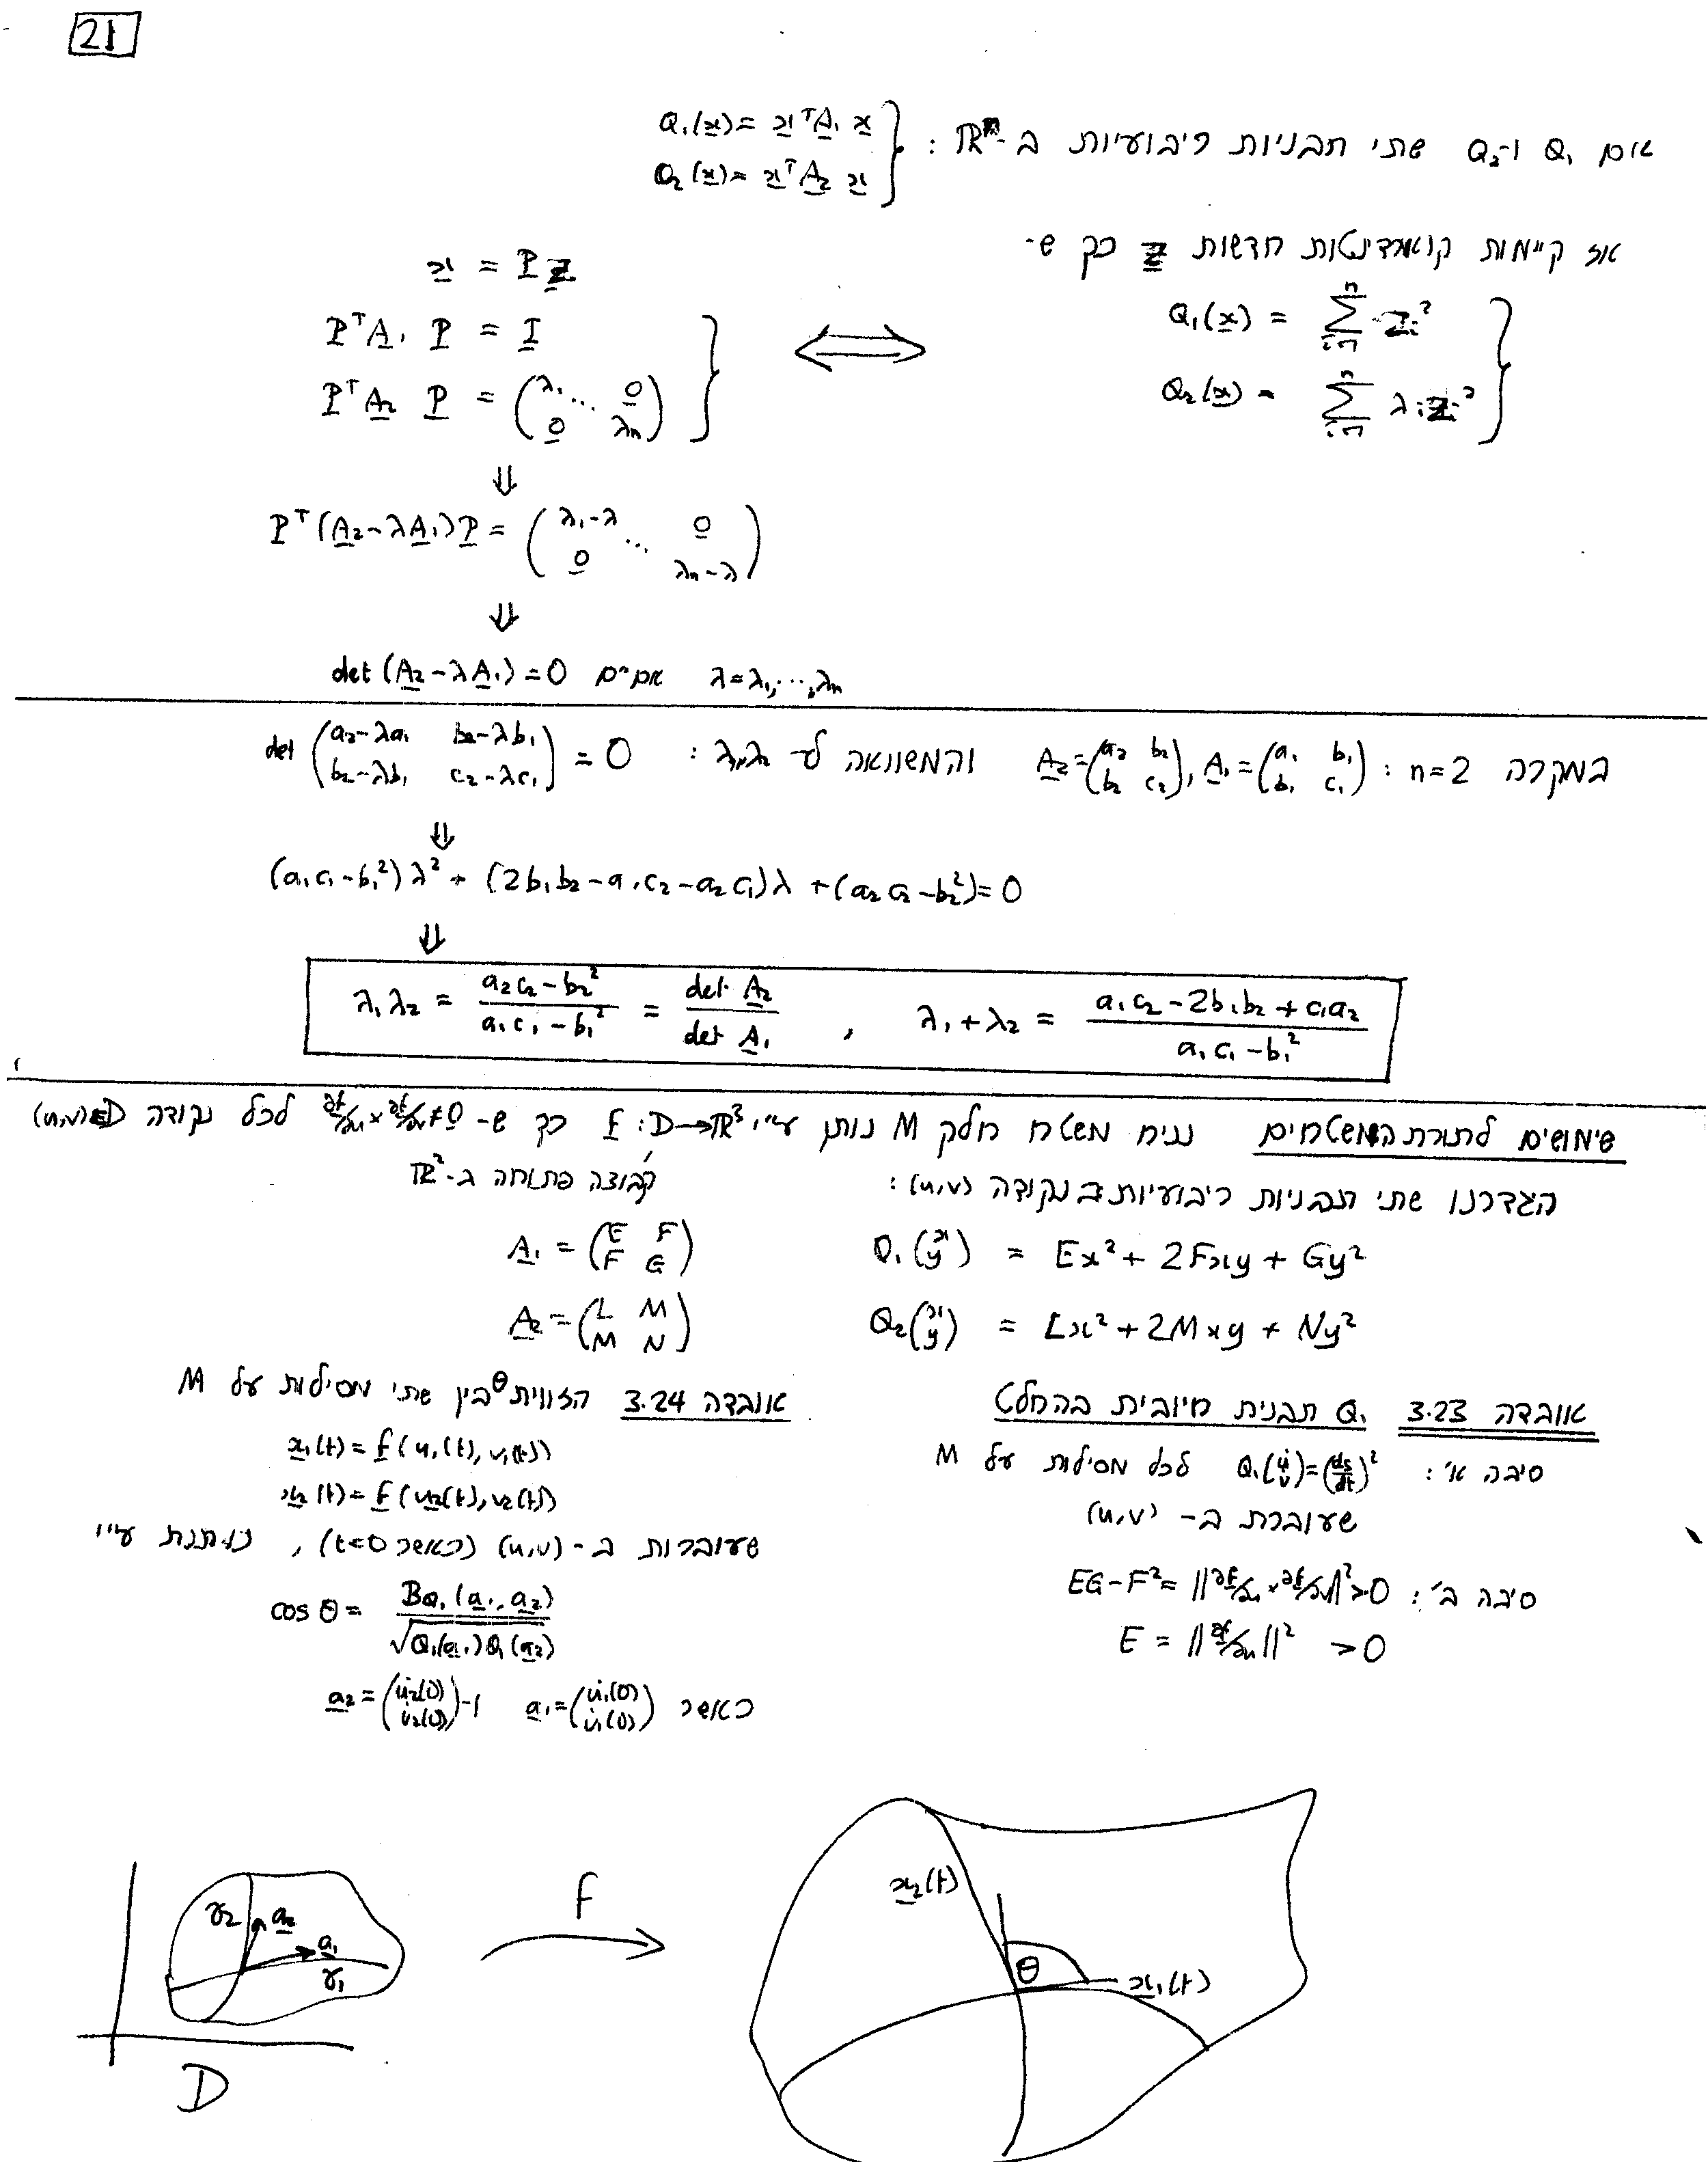 21
אם Q₁ ו-Q₂ שתי תבניות ריבועיות ב-ℝⁿ : Q₁(x) = xᵀA₁ x
Q₂(x) = xᵀA₂ x }
אז קיימות קואורדינטות חדשות z כך ש-
x = Pz
Q₁(x) = Σᵢ₌₁ⁿ zᵢ²
Q₂(x) = Σᵢ₌₁ⁿ λᵢzᵢ² }
⟺
PᵀA₁ P = I
PᵀA₂ P = (λ₁ ... 0 / 0 λₙ) }
⇓
Pᵀ(A₂-λA₁)P = (λ₁-λ ... 0 / 0 λₙ-λ)
⇓
det (A₂-λA₁) = 0 אם״ם λ=λ₁,...,λₙ
במקרה n=2 : A₁=(a₁ b₁ / b₁ c₁), A₂=(a₂ b₂ / b₂ c₂) והמשוואה ל- λ₁,λ₂ : det (a₂-λa₁ b₂-λb₁ / b₂-λb₁ c₂-λc₁) = 0
⇓
(a₁c₁-b₁²)λ² + (2b₁b₂-a₁c₂-a₂c₁)λ + (a₂c₂-b₂²) = 0
⇓
λ₁λ₂ = (a₂c₂-b₂²)/(a₁c₁-b₁²) = det A₂/det A₁ , λ₁+λ₂ = (a₁c₂-2b₁b₂+c₁a₂)/(a₁c₁-b₁²)
שימושים לתורת המשטחים נניח משטח חלק M נותן ע״י f : D→ℝ³ כך ש- ∂f/∂u × ∂f/∂v ≠ 0 לכל נקודה (u,v)∈D
קבוצה פתוחה ב-ℝ²
הגדרנו שתי תבניות ריבועיות ב נקודה (u,v) :
Q₁(x / y) = Ex² + 2Fxy + Gy² A₁ = (E F / F G)
Q₂(x / y) = Lx² + 2Mxy + Ny² A₂ = (L M / M N)
עובדה 3.23 Q₁ תבנית חיובית בהחלט
סיבה א׳ : Q₁(u̇ / v̇) = (ds/dt)² לכל מסילות על M
שעוברת ב- (u,v)
סיבה ב׳ : EG-F² = ||∂f/∂u × ∂f/∂v||² > 0
E = ||∂f/∂u||² > 0
עובדה 3.24 הזווית θ בין שתי מסילות על M
x₁(t) = f(u₁(t), v₁(t))
x₂(t) = f(u₂(t), v₂(t))
שעוברות ב- (u,v) (כאשר t=0) , ניתנת ע״י
cos θ = B_Q₁(a₁, a₂)/√(Q₁(a₁)Q₁(a₂))
כאשר a₁ = (u̇₁(0) / v̇₁(0)) ו- a₂ = (u̇₂(0) / v̇₂(0))
γ₂ a₂
a₁
γ₁
D
f
x₂(t)
θ
x₁(t)